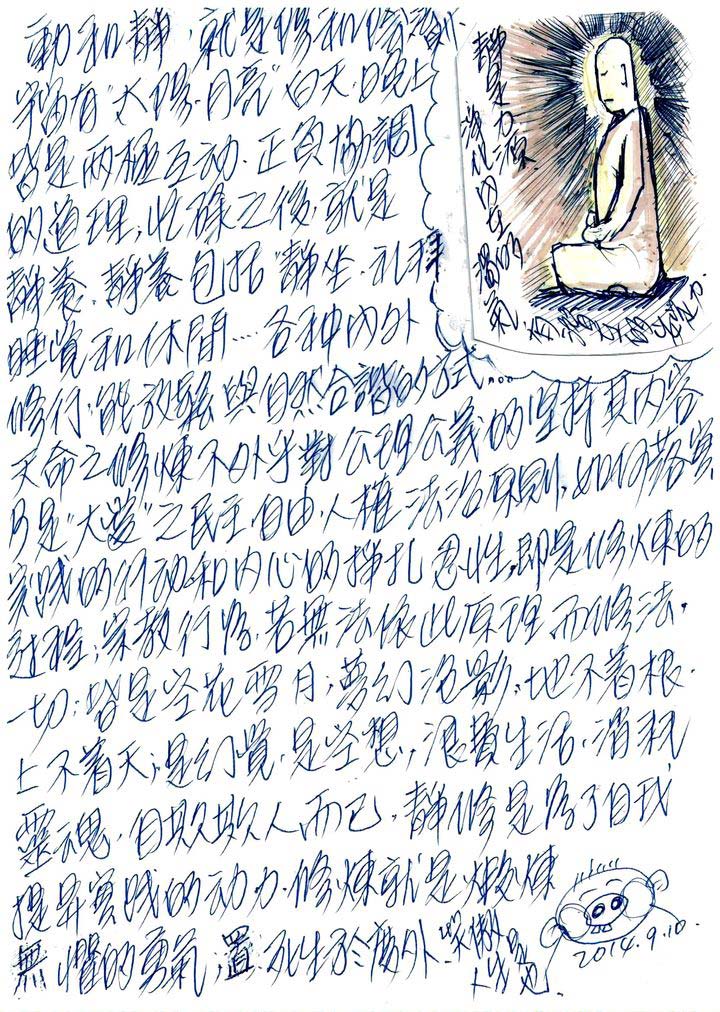 動和靜，就是修和修
宇宙有“太陽．月亮”白天．晚上
皆是兩極互动．正負協調
的道理；忙碌之後．就是
靜養．靜養包括“靜坐．礼拜
睡覚和休閒…各种內外
修行；能放鬆與自然合諧的方式…
天命之修煉不外乎對公理公義的坚持其内容
乃是“大愛”之民主．自由．人權．法治原則，如何落實
実践的行动和内心的掙扎忍性，即是修煉的
过程；宗教行修．若無法依此原理而修法．
一切；皆是空花雪月；夢幻泡影；地不着根．
上不着天；是幻覺．是空想；浪費生活．消耗
靈魂．自欺欺人而已．靜修是為了自我
提昇実践的动力．修煉就是煅煉
無懼的勇氣；置死生於度外．笑傲
人
靜是力源
淨化內在的濁氣
2014.9.10.